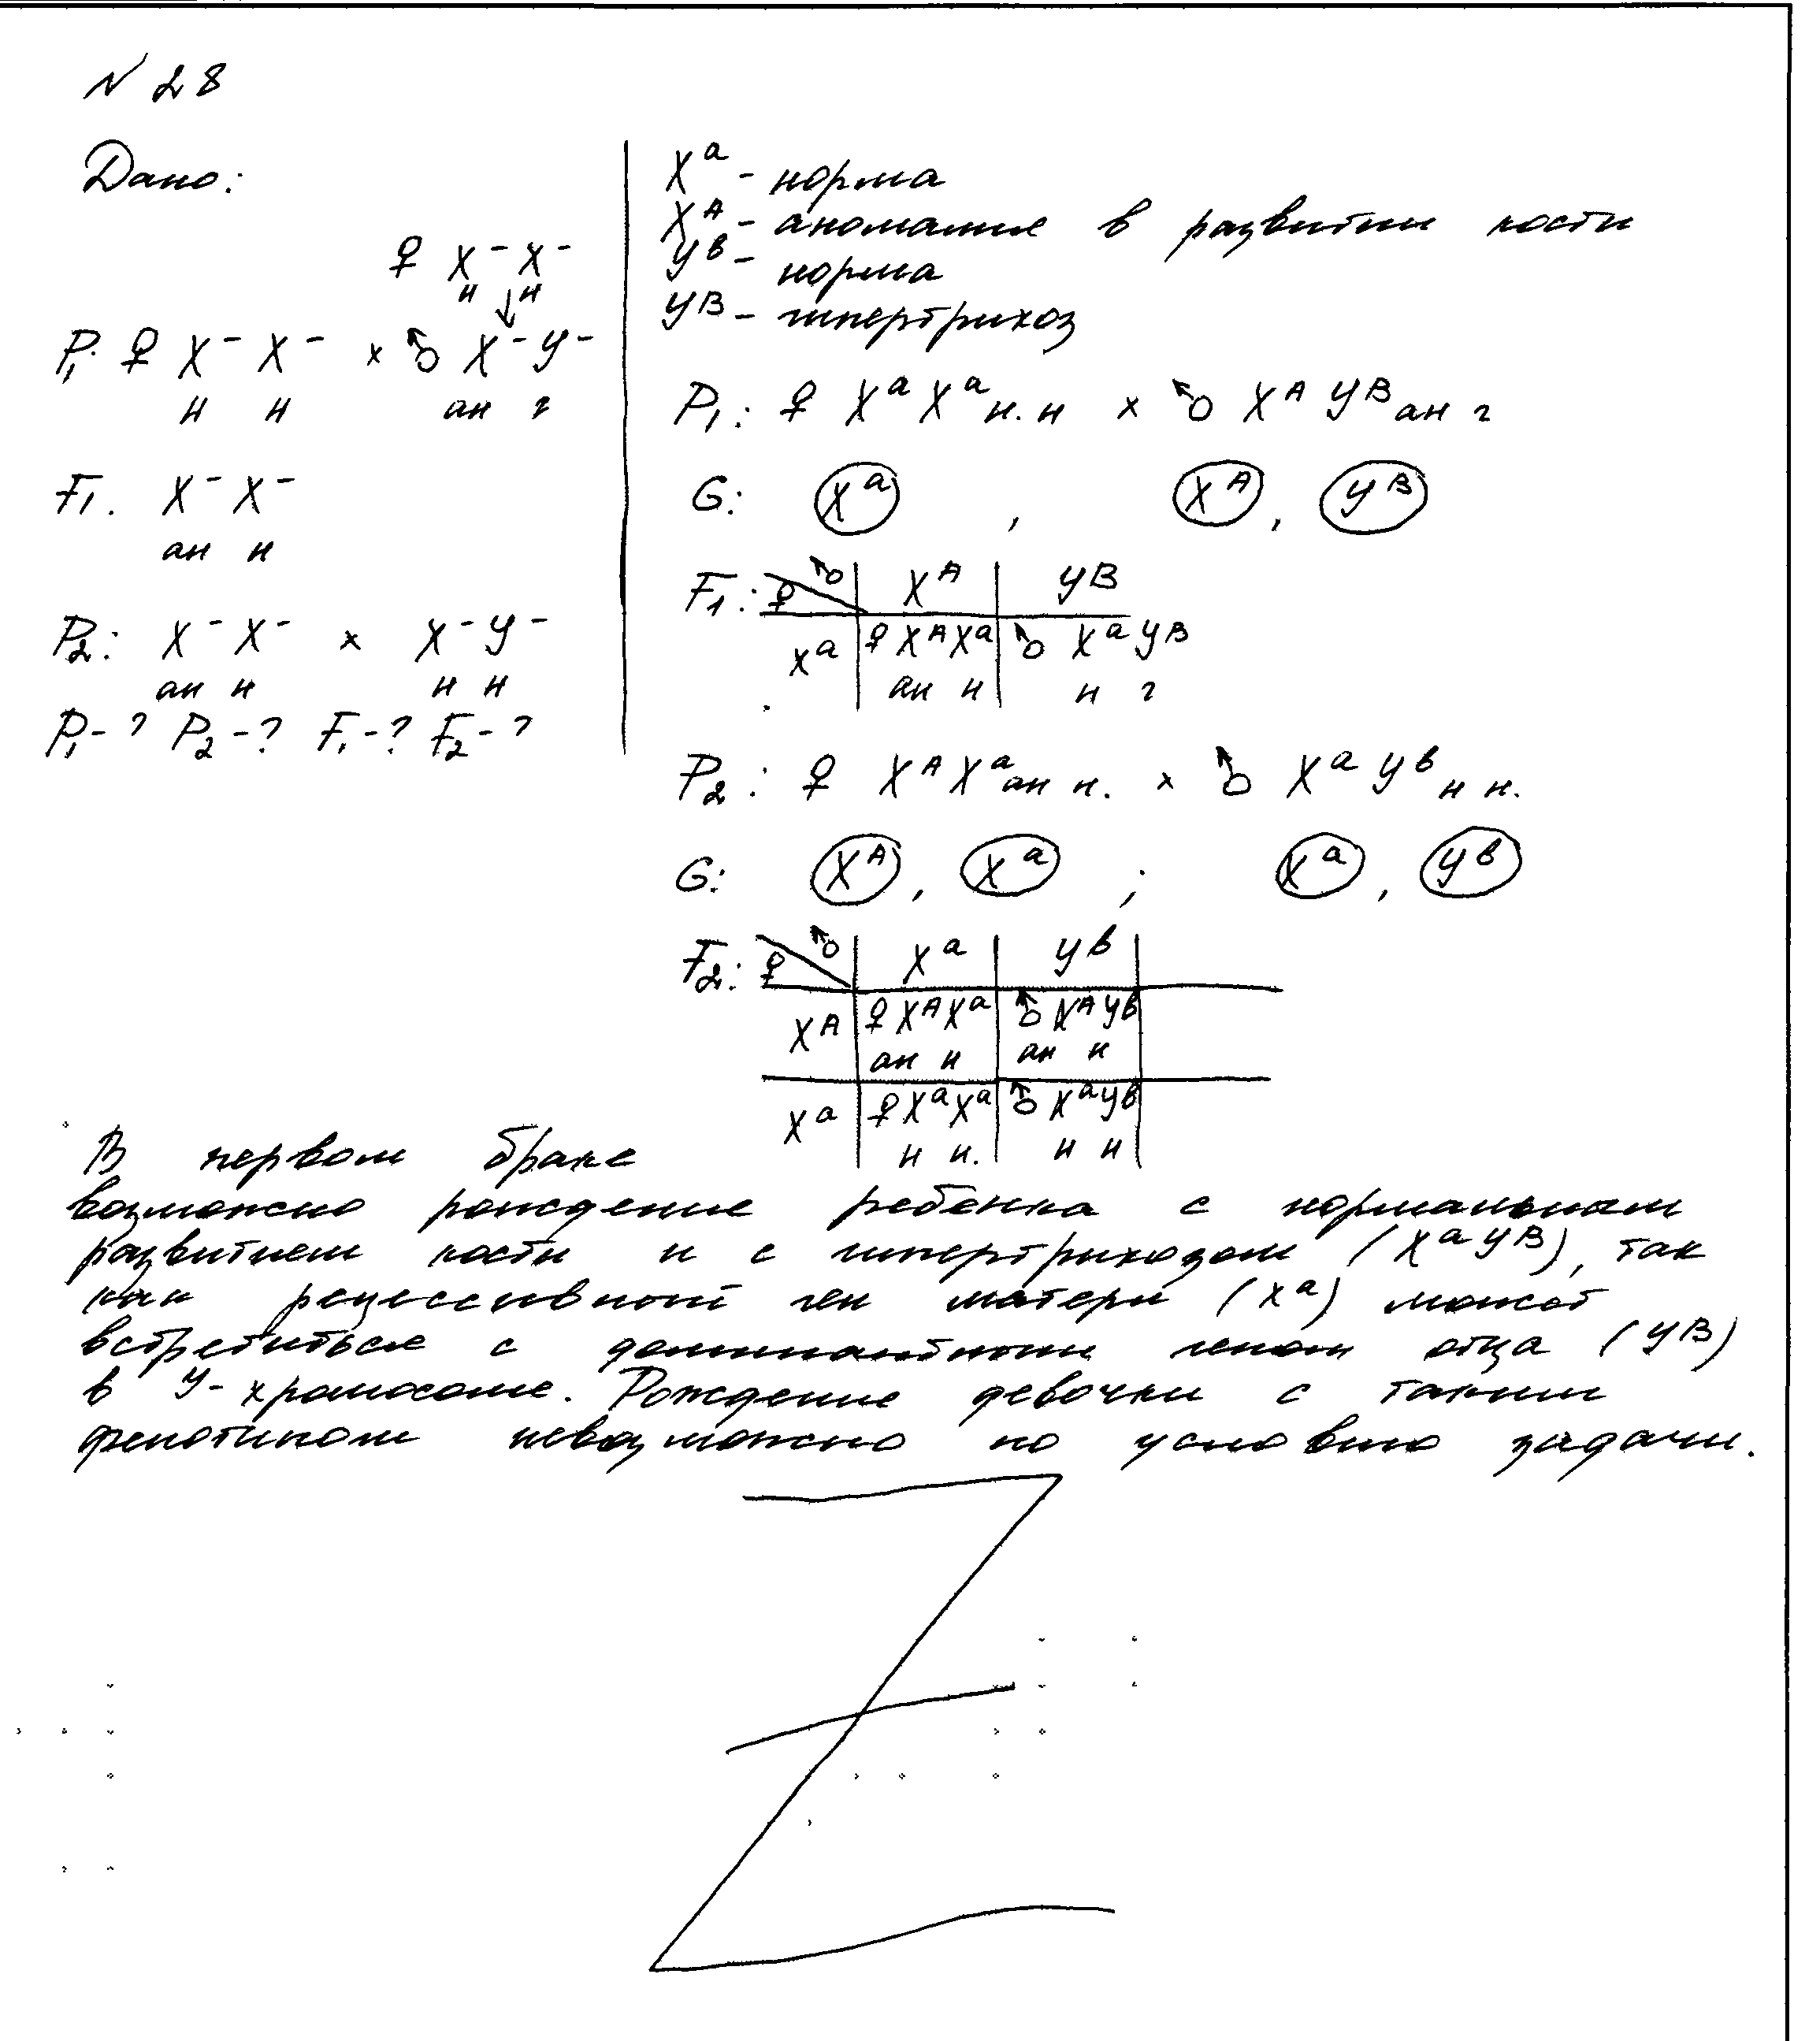 N 28
Дано:
♀ X⁻X⁻
н ↓ н
P₁: ♀ X⁻ X⁻ × ♂ X⁻У⁻
н н ан г
F₁. X⁻ X⁻
ан н
P₂: X⁻ X⁻ × X⁻У⁻
ан н н н
P₁-? P₂-? F₁-? F₂-?
Xᵃ - норма
Xᴬ - аномалие в развитии кости
Уᵇ - норма
Уᴮ - гипертрихоз
P₁: ♀ XᵃXᵃ н. н × ♂ XᴬУᴮ ан г
G: Xᵃ , Xᴬ, Уᴮ
F₁: ♀ ♂ Xᴬ Уᴮ
Xᵃ ♀ XᴬXᵃ ♂ XᵃУᴮ
ан н н г
P₂: ♀ XᴬXᵃ ан н. × ♂ XᵃУᵇ н н.
G: Xᴬ, Xᵃ ; Xᵃ, Уᵇ
F₂: ♀ ♂ Xᵃ Уᵇ
Xᴬ ♀ XᴬXᵃ ♂ XᴬУᵇ
ан н ан н
Xᵃ ♀ XᵃXᵃ ♂ XᵃУᵇ
н н. н н
В первом браке
возможно рождение ребенка с нормальным
развитием кости и с гипертрихозом (XᵃУᴮ), так
как рецессивной ген матери (Xᵃ) может
встретиться с доминантным геном отца (Уᴮ)
в У-хромосоме. Рождение девочки с таким
фенотипом невозможно по условию задачи.